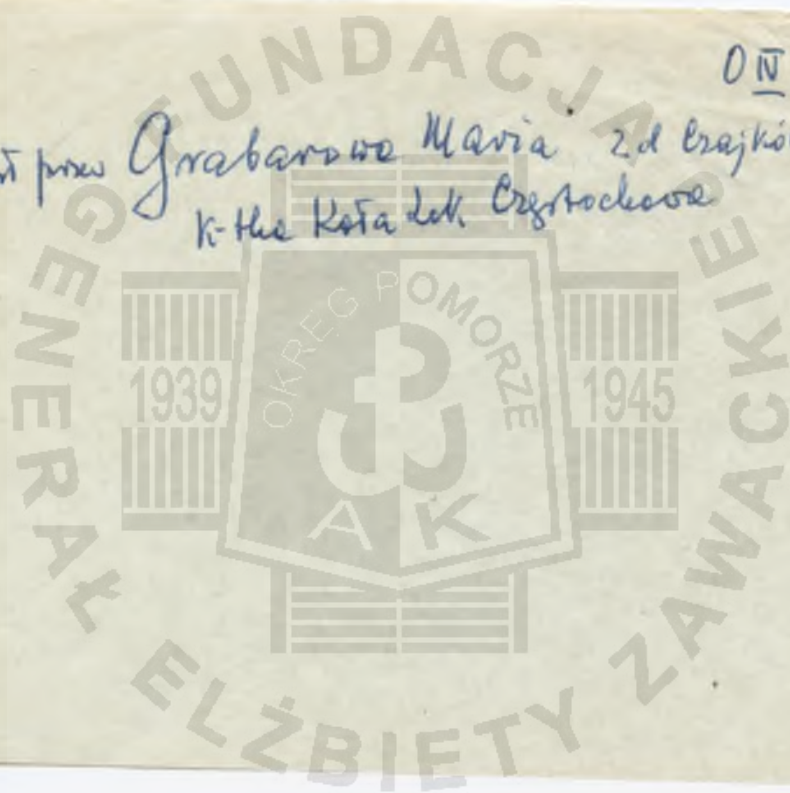 O IV
Grabarowa Maria z d Czajkó
K-tka Koła Lek. Częstochowa
FUNDACJA GENERAŁ ELŻBIETY ZAWACKIEJ
OKRĘG POMORZE
1939 1945
AK